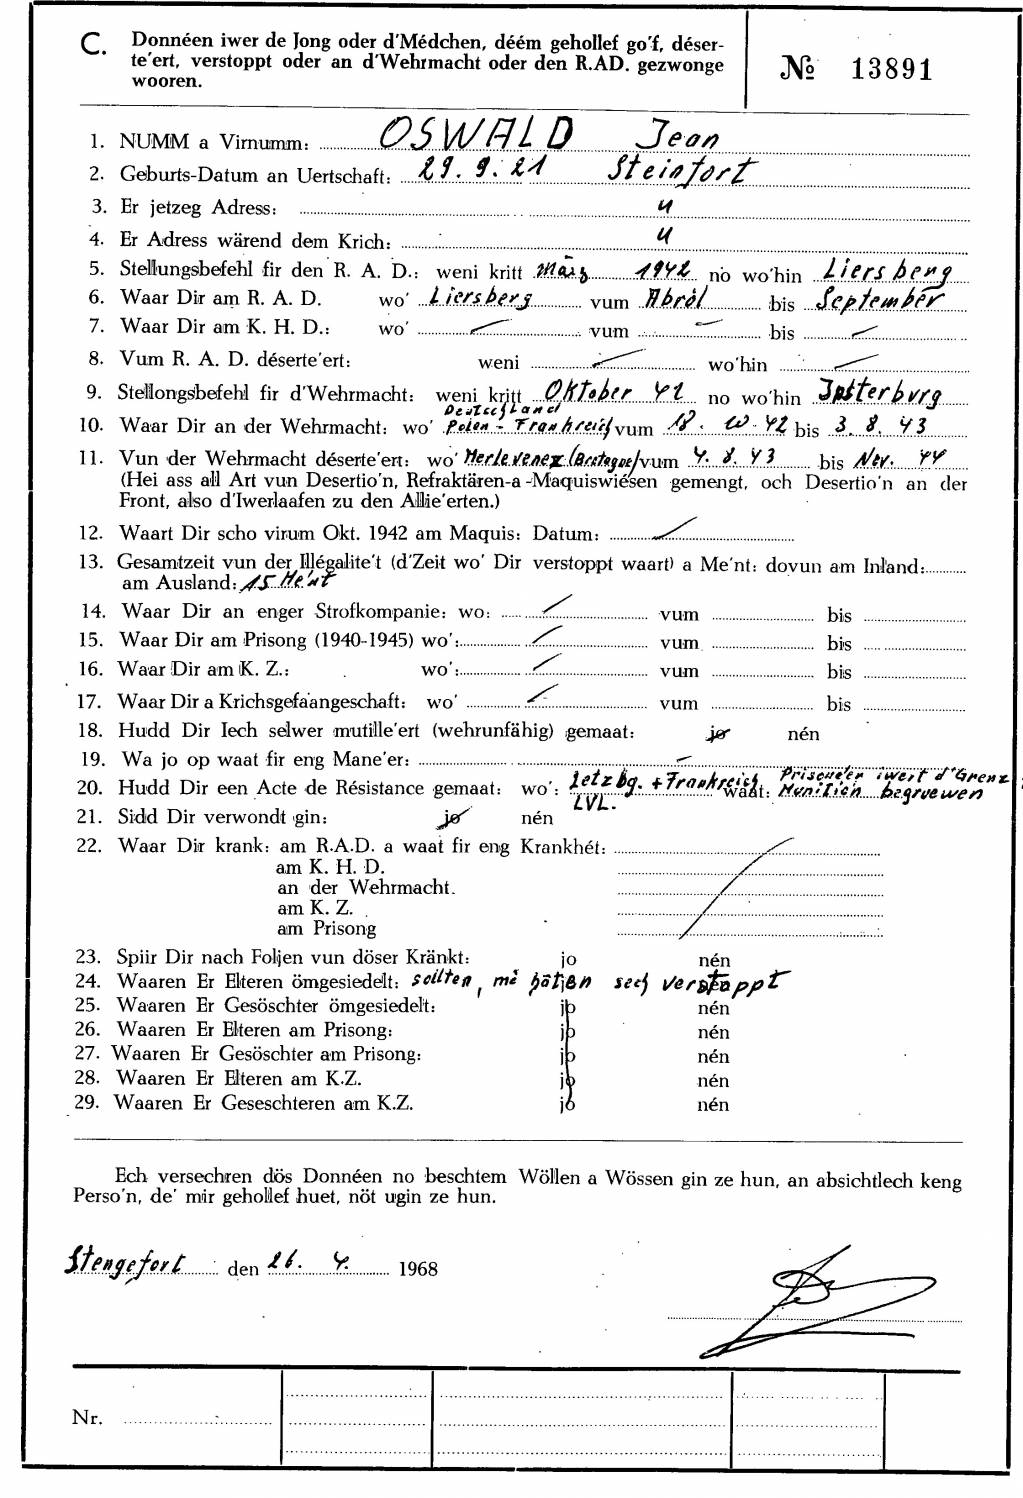 C. Donnéen iwer de Jong oder d'Médchen, déém gehollef go'f, déser-
te'ert, verstoppt oder an d'Wehrmacht oder den R.AD. gezwonge
wooren.
№ 13891
1. NUMM a Virnumm: OSWALD Jean
2. Geburts-Datum an Uertschaft: 29.9.21 Steinfort
3. Er jetzeg Adress: "
4. Er Adress wärend dem Krich: "
5. Stellungsbefehl fir den R. A. D.: weni kritt März 1942 no wo'hin Liersberg
6. Waar Dir am R. A. D. wo' Liersberg vum Abröl bis September
7. Waar Dir am K. H. D.: wo' vum bis
8. Vum R. A. D. déserte'ert: weni wo'hin
9. Stellongsbefehl fir d'Wehrmacht: weni kritt Oktober 42 no wo'hin Insterburg
Deutschland
10. Waar Dir an der Wehrmacht: wo' Polen - Frankreich vum 18. 10. 42 bis 3. 8. 43
11. Vun der Wehrmacht déserte'ert: wo' Merlevenez (Bretagne) vum 4. 8. 43 bis Nov. 44
(Hei ass all Art vun Desertio'n, Refraktären-a -Maquiswiésen gemengt, och Desertio'n an der
Front, also d'Iwerlaafen zu den Allie'erten.)
12. Waart Dir scho virum Okt. 1942 am Maquis: Datum:
13. Gesamtzeit vun der Illégalite't (d'Zeit wo' Dir verstoppt waart) a Me'nt: dovun am Inland:
am Ausland: 15 Me'nt
14. Waar Dir an enger Strofkompanie: wo: vum bis
15. Waar Dir am Prisong (1940-1945) wo': vum bis
16. Waar Dir am K. Z.: wo': vum bis
17. Waar Dir a Krichsgefaangeschaft: wo' vum bis
18. Hudd Dir Iech selwer mutille'ert (wehrunfähig) gemaat: jo nén
19. Wa jo op waat fir eng Mane'er:
20. Hudd Dir een Acte de Résistance gemaat: wo': Letzbg. + Frankreich waat: Prisonéier iwert d'Grenz
LVL. Munitioin begruewen
21. Sidd Dir verwondt gin: jo nén
22. Waar Dir krank: am R.A.D. a waat fir eng Krankhét:
am K. H. D.
an der Wehrmacht.
am K. Z.
am Prisong
23. Spiir Dir nach Foljen vun döser Kränkt: jo nén
24. Waaren Er Elteren ömgesiedelt: sollten, mè hätjen sech verstoppt
25. Waaren Er Gesöschter ömgesiedelt: jo nén
26. Waaren Er Elteren am Prisong: jo nén
27. Waaren Er Gesöschter am Prisong: jo nén
28. Waaren Er Elteren am K.Z. jo nén
29. Waaren Er Geseschteren am K.Z. jo nén
Ech versechren dös Donnéen no beschtem Wöllen a Wössen gin ze hun, an absichtlech keng
Perso'n, de' mir gehollef huet, nöt ugin ze hun.
Stengefort den 26. 4. 1968
Nr.